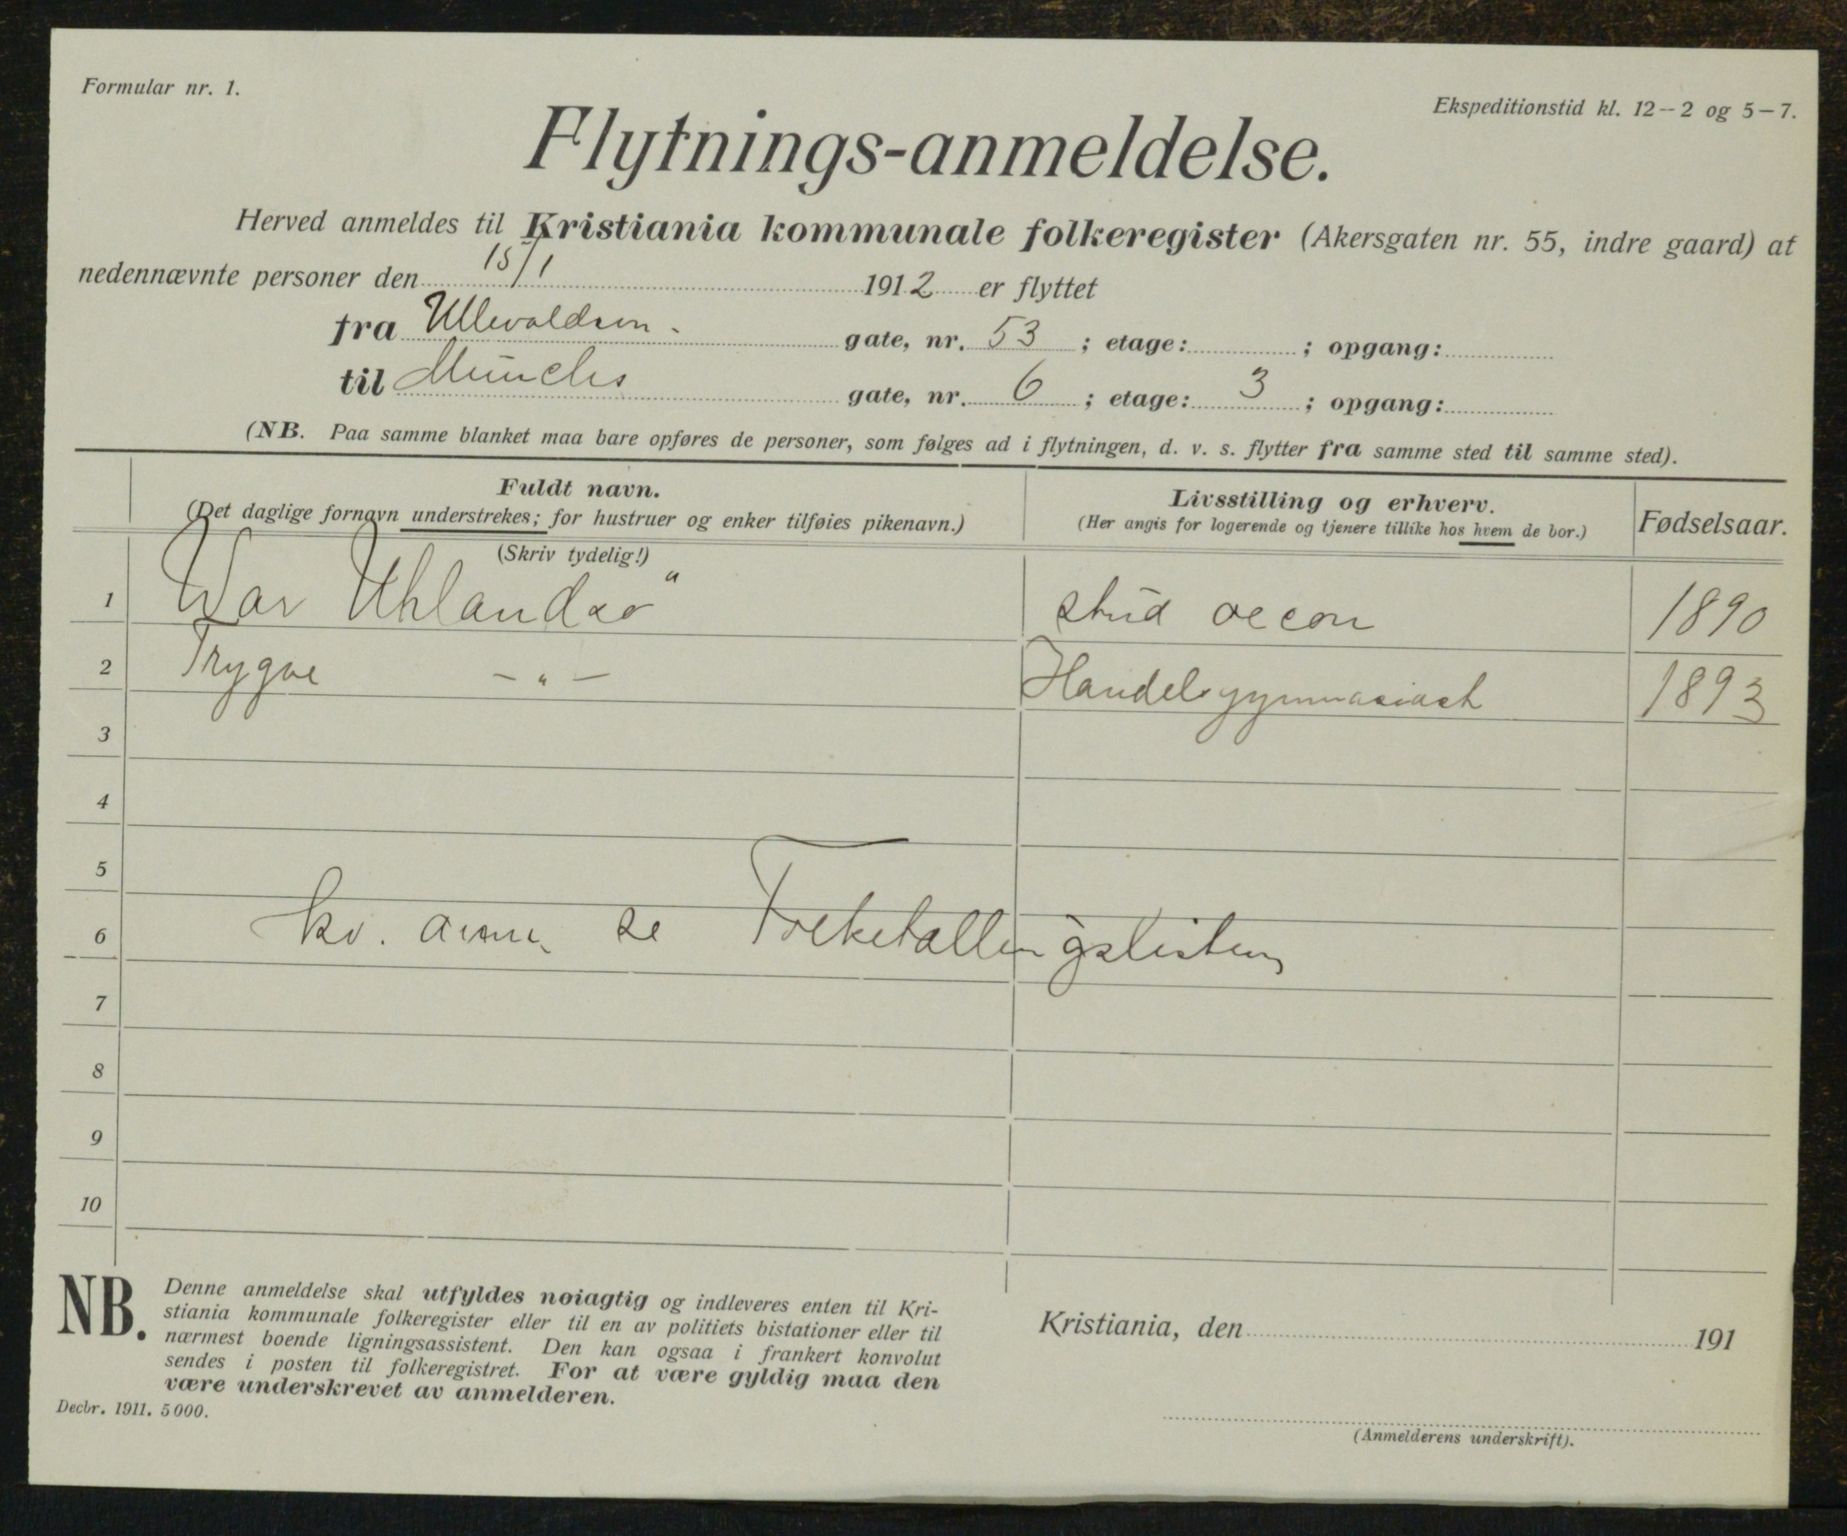 Formular nr. 1.
Ekspeditionstid kl. 12-2 og 5-7.
Flytnings-anmeldelse.
Herved anmeldes til Kristiania kommunale folkeregister (Akersgaten nr. 55, indre gaard) at
nedennævnte personer den 15/1 1912 er flyttet
fra Ullevoldsvn. gate, nr. 53 ; etage: ; opgang:
til Münchs gate, nr. 6 ; etage: 3 ; opgang:
(NB. Paa samme blanket maa bare opføres de personer, som følges ad i flytningen, d. v. s. flytter fra samme sted til samme sted).
Fuldt navn.
(Det daglige fornavn understrekes; for hustruer og enker tilføies pikenavn.)
(Skriv tydelig!)
Livsstilling og erhverv.
(Her angis for logerende og tjenere tillike hos hvem de bor.)
Fødselsaar.
1 Uhland stud oecon 1890
2 Trygve -"- Handelsgymnasiast 1893
3
4
5
6 se Folketællingslisten
7
8
9
10
NB. Denne anmeldelse skal utfyldes nøiagtig og indleveres enten til Kri-
stiania kommunale folkeregister eller til en av politiets bistationer eller til
nærmest boende ligningsassistent. Den kan ogsaa i frankert konvolut
sendes i posten til folkeregistret. For at være gyldig maa den
være underskrevet av anmelderen.
Decbr. 1911. 5000.
Kristiania, den 191
(Anmelderens underskrift).